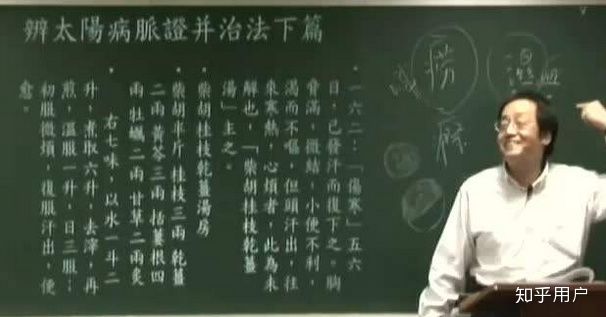 辨太陽病脈證并治法下篇
• 一六二：「傷寒」五六
日，已發汗而復下之。胸
脅滿，微結，小便不利，
渴而不嘔，但頭汗出，往
來寒熱，心煩者，此為未
解也，「柴胡桂枝乾薑
湯」主之。
• 柴胡桂枝乾薑湯房
柴胡半斤 桂枝三兩 乾薑
二兩 黃芩三兩 括蔞根四
兩 牡蠣二兩 甘草二兩炙
• 右七味，以水一斗二
升，煮取六升，去滓，再
煎，溫服一升，日三服；
初服微煩，復服汗出，便
愈。
知乎用户